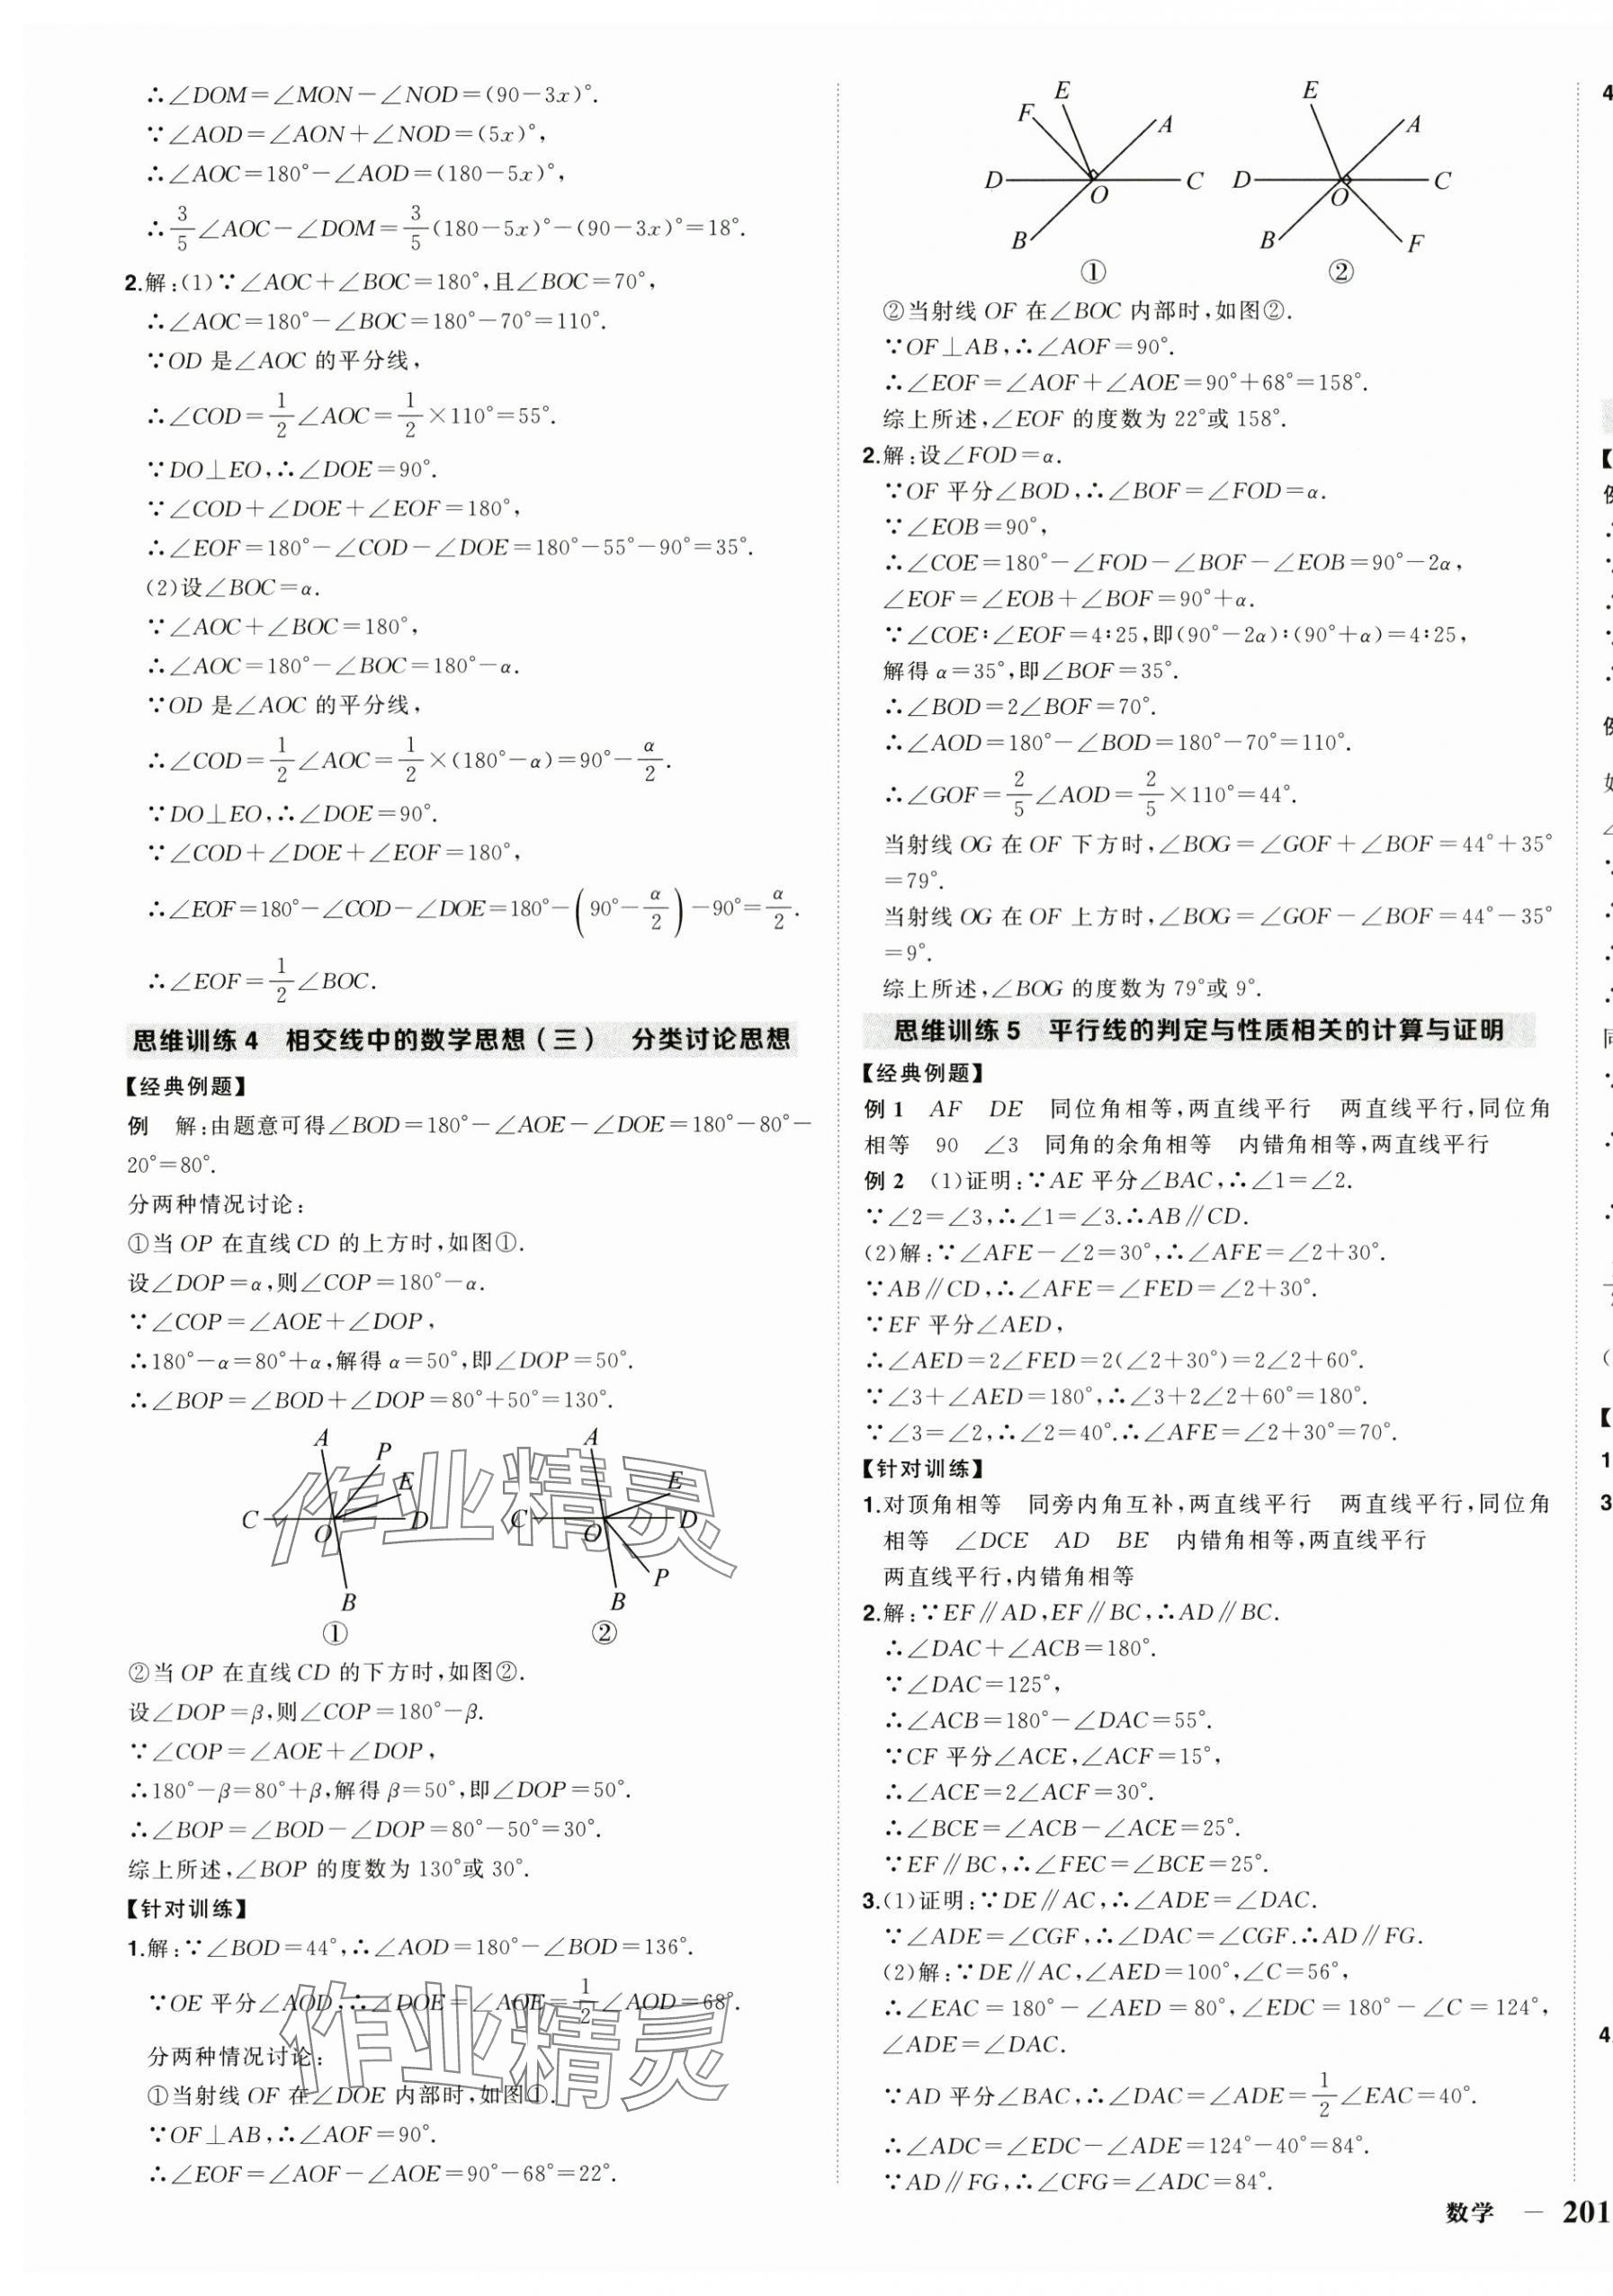 ∴∠DOM=∠MON-∠NOD=(90-3x)°.
∵∠AOD=∠AON+∠NOD=(5x)°,
∴∠AOC=180°-∠AOD=(180-5x)°,
∴3/5∠AOC-∠DOM=3/5(180-5x)°-(90-3x)°=18°.
2.解:(1)∵∠AOC+∠BOC=180°,且∠BOC=70°,
∴∠AOC=180°-∠BOC=180°-70°=110°.
∵OD 是∠AOC 的平分线,
∴∠COD=1/2∠AOC=1/2×110°=55°.
∵DO⊥EO,∴∠DOE=90°.
∵∠COD+∠DOE+∠EOF=180°,
∴∠EOF=180°-∠COD-∠DOE=180°-55°-90°=35°.
(2)设∠BOC=α.
∵∠AOC+∠BOC=180°,
∴∠AOC=180°-∠BOC=180°-α.
∵OD 是∠AOC 的平分线,
∴∠COD=1/2∠AOC=1/2×(180°-α)=90°-α/2.
∵DO⊥EO,∴∠DOE=90°.
∵∠COD+∠DOE+∠EOF=180°,
∴∠EOF=180°-∠COD-∠DOE=180°-(90°-α/2)-90°=α/2.
∴∠EOF=1/2∠BOC.
思维训练4 相交线中的数学思想(三) 分类讨论思想
【经典例题】
例 解:由题意可得∠BOD=180°-∠AOE-∠DOE=180°-80°-
20°=80°.
分两种情况讨论:
①当 OP 在直线 CD 的上方时,如图①.
设∠DOP=α,则∠COP=180°-α.
∵∠COP=∠AOE+∠DOP,
∴180°-α=80°+α,解得 α=50°,即∠DOP=50°.
∴∠BOP=∠BOD+∠DOP=80°+50°=130°.
A P E C O D B
①
A E C O D P B
②
作业精灵
②当 OP 在直线 CD 的下方时,如图②.
设∠DOP=β,则∠COP=180°-β.
∵∠COP=∠AOE+∠DOP,
∴180°-β=80°+β,解得 β=50°,即∠DOP=50°.
∴∠BOP=∠BOD-∠DOP=80°-50°=30°.
综上所述,∠BOP 的度数为 130°或 30°.
【针对训练】
1.解:∵∠BOD=44°,∴∠AOD=180°-∠BOD=136°.
∵OE 平分∠AOD,∴∠DOE=∠AOE=1/2∠AOD=68°.
作业精灵
分两种情况讨论:
①当射线 OF 在∠DOE 内部时,如图①.
∵OF⊥AB,∴∠AOF=90°.
∴∠EOF=∠AOF-∠AOE=90°-68°=22°.
E F A D C O B
①
E A D C O B F
②
②当射线 OF 在∠BOC 内部时,如图②.
∵OF⊥AB,∴∠AOF=90°.
∴∠EOF=∠AOF+∠AOE=90°+68°=158°.
综上所述,∠EOF 的度数为 22°或 158°.
2.解:设∠FOD=α.
∵OF 平分∠BOD,∴∠BOF=∠FOD=α.
∵∠EOB=90°,
∴∠COE=180°-∠FOD-∠BOF-∠EOB=90°-2α,
∠EOF=∠EOB+∠BOF=90°+α.
∵∠COE:∠EOF=4:25,即(90°-2α):(90°+α)=4:25,
解得 α=35°,即∠BOF=35°.
∴∠BOD=2∠BOF=70°.
∴∠AOD=180°-∠BOD=180°-70°=110°.
∴∠GOF=2/5∠AOD=2/5×110°=44°.
当射线 OG 在 OF 下方时,∠BOG=∠GOF+∠BOF=44°+35°
=79°.
当射线 OG 在 OF 上方时,∠BOG=∠GOF-∠BOF=44°-35°
=9°.
综上所述,∠BOG 的度数为 79°或 9°.
思维训练5 平行线的判定与性质相关的计算与证明
【经典例题】
例1 AF DE 同位角相等,两直线平行 两直线平行,同位角
相等 90 ∠3 同角的余角相等 内错角相等,两直线平行
例2 (1)证明:∵AE 平分∠BAC,∴∠1=∠2.
∵∠2=∠3,∴∠1=∠3.∴AB∥CD.
(2)解:∵∠AFE-∠2=30°,∴∠AFE=∠2+30°.
∵AB∥CD,∴∠AFE=∠FED=∠2+30°.
∵EF 平分∠AED,
∴∠AED=2∠FED=2(∠2+30°)=2∠2+60°.
∵∠3+∠AED=180°,∴∠3+2∠2+60°=180°.
∵∠3=∠2,∴∠2=40°.∴∠AFE=∠2+30°=70°.
【针对训练】
1.对顶角相等 同旁内角互补,两直线平行 两直线平行,同位角
相等 ∠DCE AD BE 内错角相等,两直线平行
两直线平行,内错角相等
2.解:∵EF∥AD,EF∥BC,∴AD∥BC.
∴∠DAC+∠ACB=180°.
∵∠DAC=125°,
∴∠ACB=180°-∠DAC=55°.
∵CF 平分∠ACE,∠ACF=15°,
∴∠ACE=2∠ACF=30°.
∴∠BCE=∠ACB-∠ACE=25°.
∵EF∥BC,∴∠FEC=∠BCE=25°.
3.(1)证明:∵DE∥AC,∴∠ADE=∠DAC.
∵∠ADE=∠CGF,∴∠DAC=∠CGF.∴AD∥FG.
(2)解:∵DE∥AC,∠AED=100°,∠C=56°,
∴∠EAC=180°-∠AED=80°,∠EDC=180°-∠C=124°,
∠ADE=∠DAC.
∵AD 平分∠BAC,∴∠DAC=∠ADE=1/2∠EAC=40°.
∴∠ADC=∠EDC-∠ADE=124°-40°=84°.
∵AD∥FG,∴∠CFG=∠ADC=84°.
数学 — 201